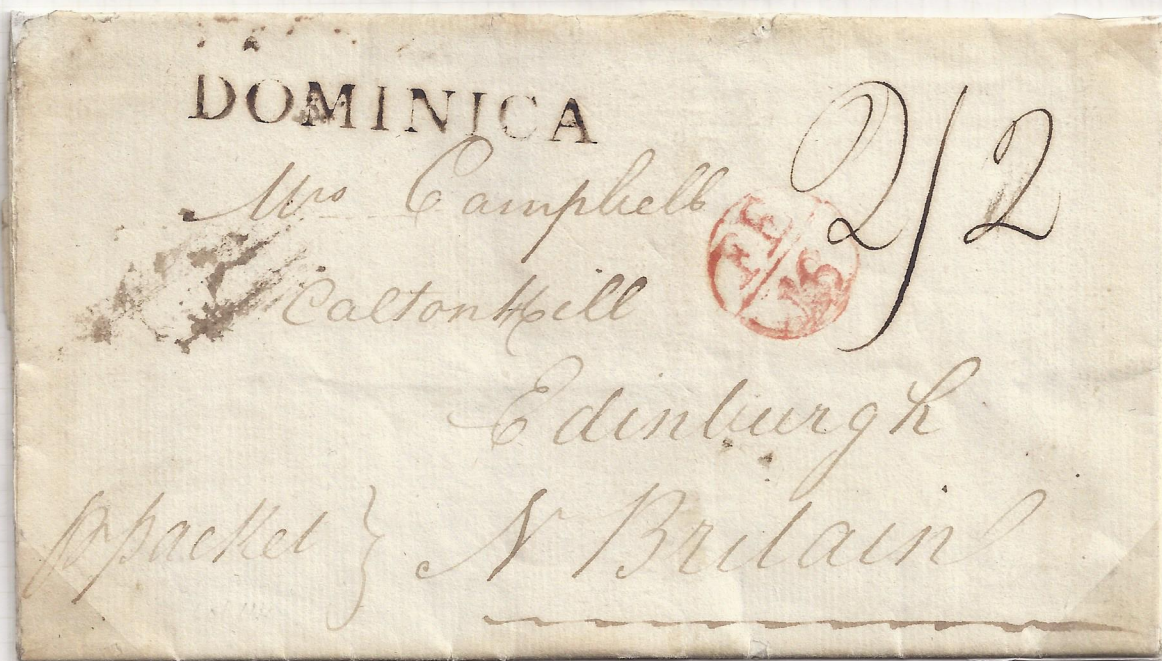 DOMINICA
2/2
Mrs Campbell
FE
Calton Hill
Edinburgh
packet } N Britain